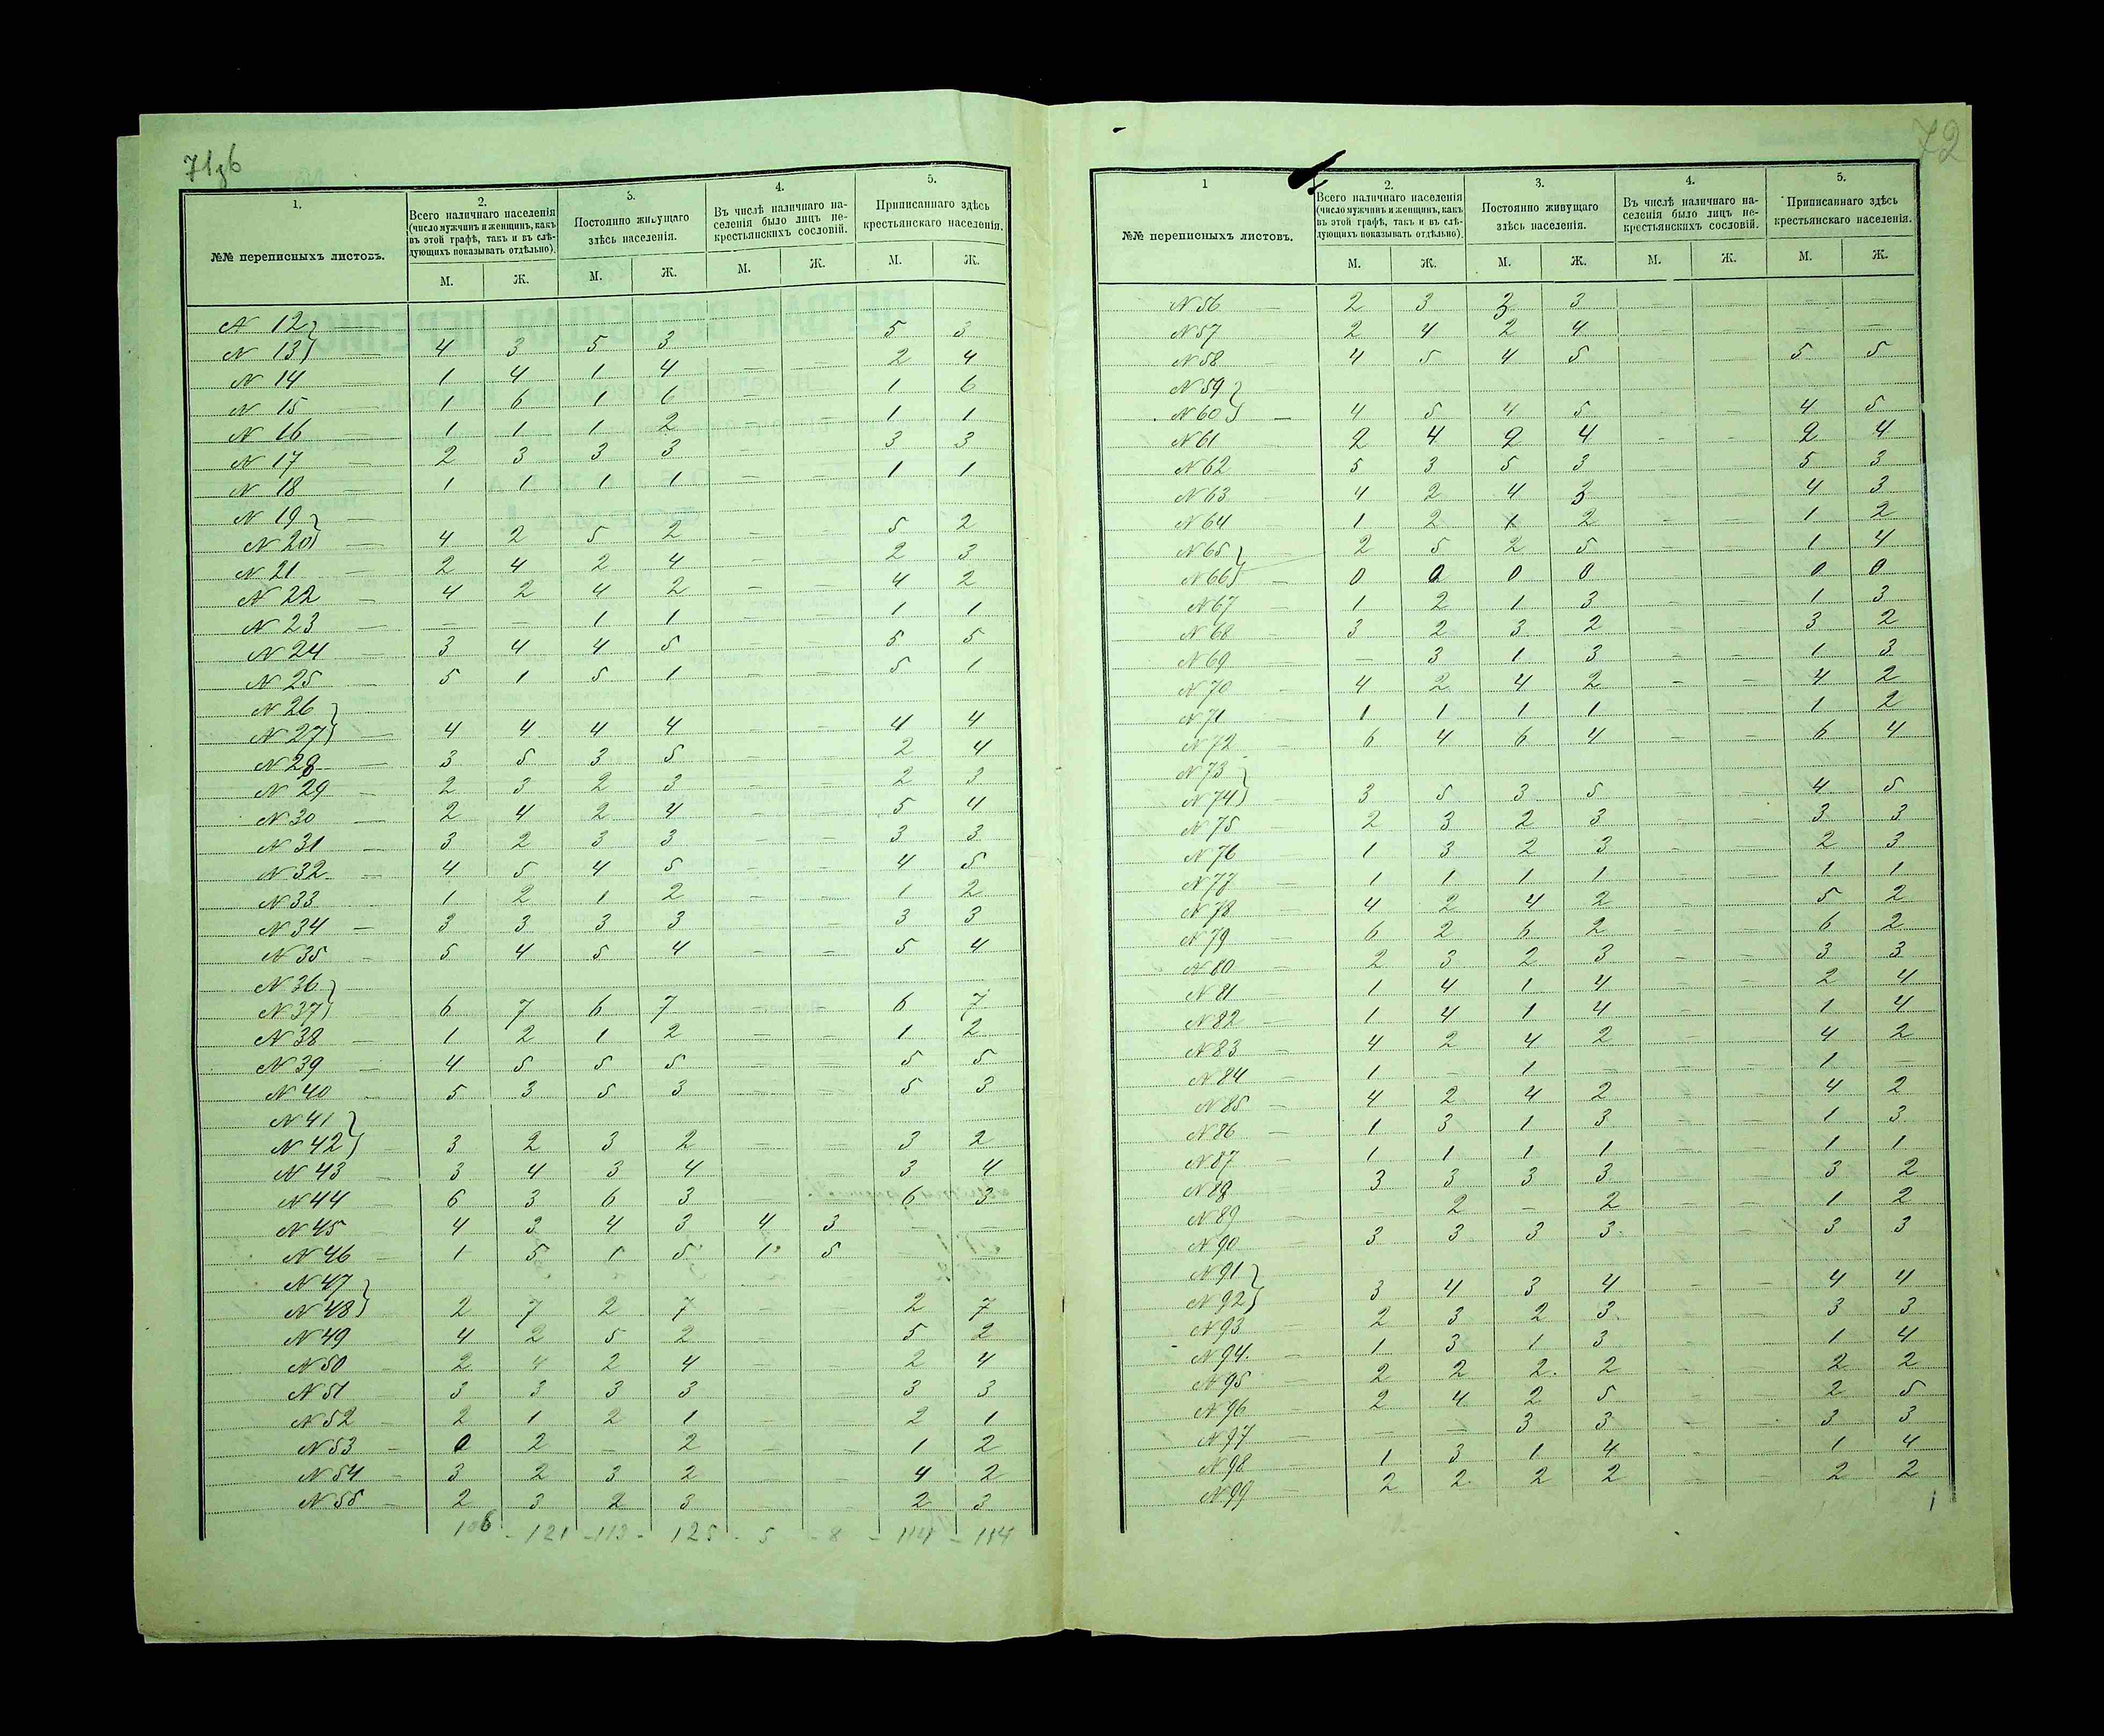 71об
1.
2.
3.
4.
5.
№№ переписныхъ листовъ.
Всего наличнаго населенія (число мужчинъ и женщинъ, какъ въ этой графѣ, такъ и въ слѣдующихъ показывать отдѣльно).
Постоянно живущаго здѣсь населенія.
Въ числѣ наличнаго населенія было лицъ некрестьянскихъ сословій.
Приписаннаго здѣсь крестьянскаго населенія.
М. Ж. М. Ж. М. Ж. М. Ж.
N 12 —
N 13 — 4 3 5 3 5 3
N 14 — 1 4 1 4 — — 2 4
N 15 — 1 6 1 6 — — 1 6
N 16 — 1 1 1 2 — — 1 1
N 17 — 2 3 3 3 — 3 3
N 18 — 1 1 1 1 — — 1 1
N 19 —
N 20 — 4 2 5 2 — — 5 2
N 21 — 2 4 2 4 — — 2 3
N 22 — 4 2 4 2 — — 4 2
N 23 — — — 1 1 — — 1 1
N 24 — 3 4 4 5 — — 5 5
N 25 — 5 1 5 1 — — 5 1
N 26
N 27 — 4 4 4 4 — — 4 4
N 28 — 3 5 3 5 — — 2 4
N 29 — 2 3 2 3 — — 2 3
N 30 — 2 4 2 4 — — 5 4
N 31 — 3 2 3 3 — — 3 3
N 32 — 4 5 4 5 — — 4 5
N 33 1 2 1 2 — — 1 2
N 34 — 3 3 3 3 — — 3 3
N 35 — 5 4 5 4 — — 5 4
N 36
N 37 6 7 6 7 — — 6 7
N 38 — 1 2 1 2 — — 1 2
N 39 — 4 5 5 5 — — 5 5
N 40 — 5 3 5 3 — — 5 3
N 41
N 42 — 3 2 3 2 — — 3 2
N 43 — 3 4 3 4 — — 3 4
N 44 — 6 3 6 3 6 3
N 45 — 4 3 4 3 4 3 — —
N 46 — 1 5 1 5 1 5 — —
N 47
N 48 2 7 2 7 — — 2 7
N 49 4 2 5 2 — — 5 2
N 50 — 2 4 2 4 — — 2 4
N 51 3 3 3 3 — — 3 3
N 52 — 2 1 2 1 — — 2 1
N 53 — 0 2 — 2 — — 1 2
N 54 — 3 2 3 2 — — 4 2
N 55 — 2 3 2 3 — — 2 3
106 - 121 - 113 - 125 - 5 - 8 - 114 - 114
72
1
2.
3.
4.
5.
№№ переписныхъ листовъ.
Всего наличнаго населенія (число мужчинъ и женщинъ, какъ въ этой графѣ, такъ и въ слѣдующихъ показывать отдѣльно).
Постоянно живущаго здѣсь населенія.
Въ числѣ наличнаго населенія было лицъ некрестьянскихъ сословій.
Приписаннаго здѣсь крестьянскаго населенія.
М. Ж. М. Ж. М. Ж. М. Ж.
N 56 — 2 3 3 3 — — — —
N 57 — 2 4 2 4 — — — —
N 58 — 4 5 4 5 — — 5 5
N 59
N 60 — 4 5 4 5 — — 4 5
N 61 — 2 4 2 4 — — 2 4
N 62 — 5 3 5 3 — — 5 3
N 63 — 4 2 4 3 — — 4 3
N 64 — 1 2 1 2 — — 1 2
N 65 2 5 2 5 — — 1 4
N 66 — 0 0 0 0 — — 0 0
N 67 — 1 2 1 3 — — 1 3
N 68 — 3 2 3 2 — — 3 2
N 69 — — 3 1 3 — — 1 3
N 70 — 4 2 4 2 — — 4 2
N 71 — 1 1 1 1 — — 1 2
N 72 — 6 4 6 4 — — 6 4
N 73
N 74 — 3 5 3 5 — — 4 5
N 75 — 2 3 2 3 — — 3 3
N 76 — 1 3 2 3 — — 2 3
N 77 — 1 1 1 1 — — 1 1
N 78 — 4 2 4 2 — — 5 2
N 79 6 2 6 2 — — 6 2
N 80 — 2 3 2 3 — — 3 3
N 81 — 1 4 1 4 — — 2 4
N 82 — 1 4 1 4 — — 1 4
N 83 — 4 2 4 2 — — 4 2
N 84 — 1 — 1 — — — 1 —
N 85 — 4 2 4 2 — — 4 2
N 86 — 1 3 1 3 — — 1 3
N 87 — 1 1 1 1 — — 1 1
N 88 — 3 3 3 3 — — 3 2
N 89 — — 2 — 2 — — 1 2
N 90 — 3 3 3 3 — — 3 3
N 91
N 92 3 4 3 4 — — 4 4
N 93 — 2 3 2 3 — — 3 3
N 94. — 1 3 1 3 — — 1 4
N 95 — 2 2 2 2 — — 2 2
N 96 — 2 4 2 5 — — 2 5
N 97 — — — 3 3 — — 3 3
N 98 — 1 3 1 4 — — 1 4
N 99 — 2 2 2 2 — — 2 2